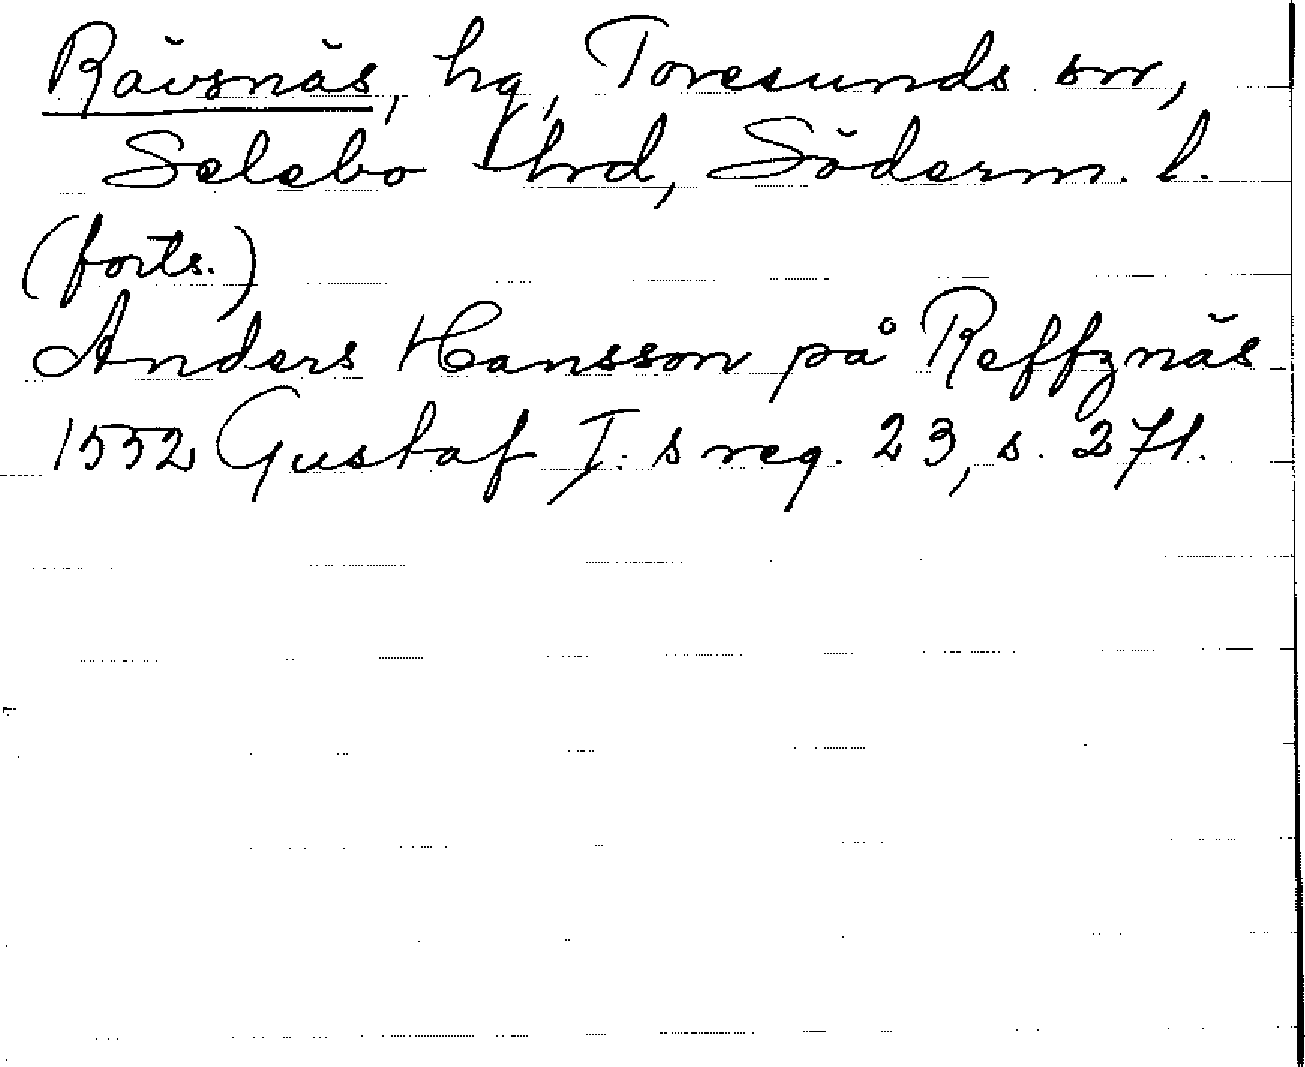 Rävsnäs, hg, Toresunds sn,
Selebo hrd, Söderm. l.
(forts.)
Anders Hansson på Reffznäs
1552 Gustaf I:s reg. 23, s. 271.